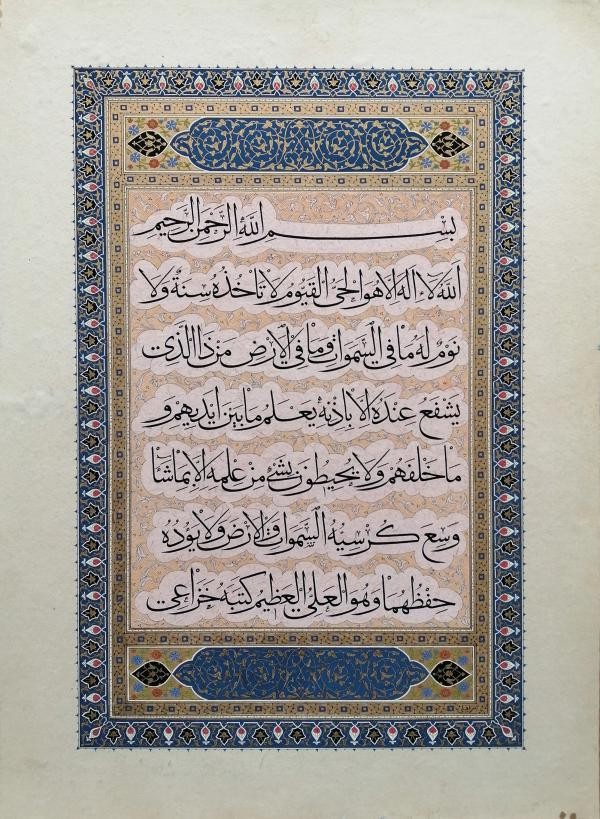 بسم الله الرحمن الرحیم
الله لا اله الا هو الحی القیوم لا تاخذه سنة ولا
نوم له ما فی السموات وما فی الارض من ذا الذی
یشفع عنده الا باذنه یعلم ما بین ایدیهم و
ما خلفهم ولا یحیطون بشئ من علمه الا بماشاء
وسع کرسیه السموات والارض ولا یؤده
حفظهما وهو العلی العظیم کتبه خزاعی